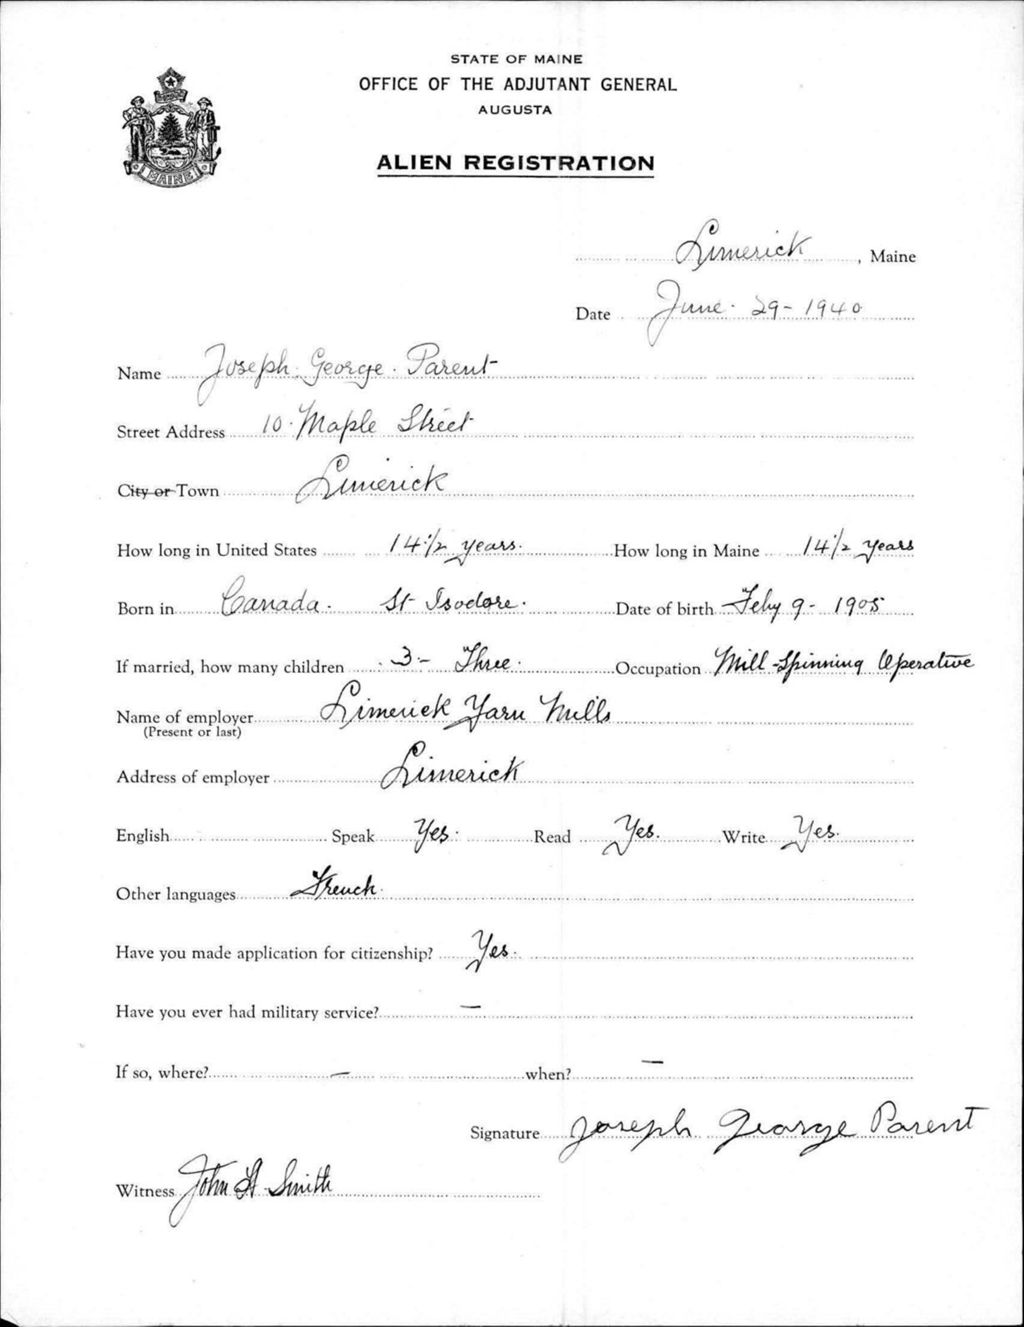 STATE OF MAINE
OFFICE OF THE ADJUTANT GENERAL
AUGUSTA
ALIEN REGISTRATION
MAINE
Limerick, Maine
Date June · 29 - 1940
Name Joseph George Parent
Street Address 10 · Maple Street
City or Town Limerick
How long in United States 14 1/2 years. How long in Maine 14 1/2 years
Born in Canada · St Isodore · Date of birth Feby 9 - 1905
If married, how many children 3 - Three · Occupation Mill - Spinning Operative
Name of employer Limerick Yarn Mills
(Present or last)
Address of employer Limerick
English Speak Yes · Read Yes. Write Yes.
Other languages French
Have you made application for citizenship? Yes.
Have you ever had military service? —
If so, where? — when? —
Signature Joseph George Parent
Witness John H Smith